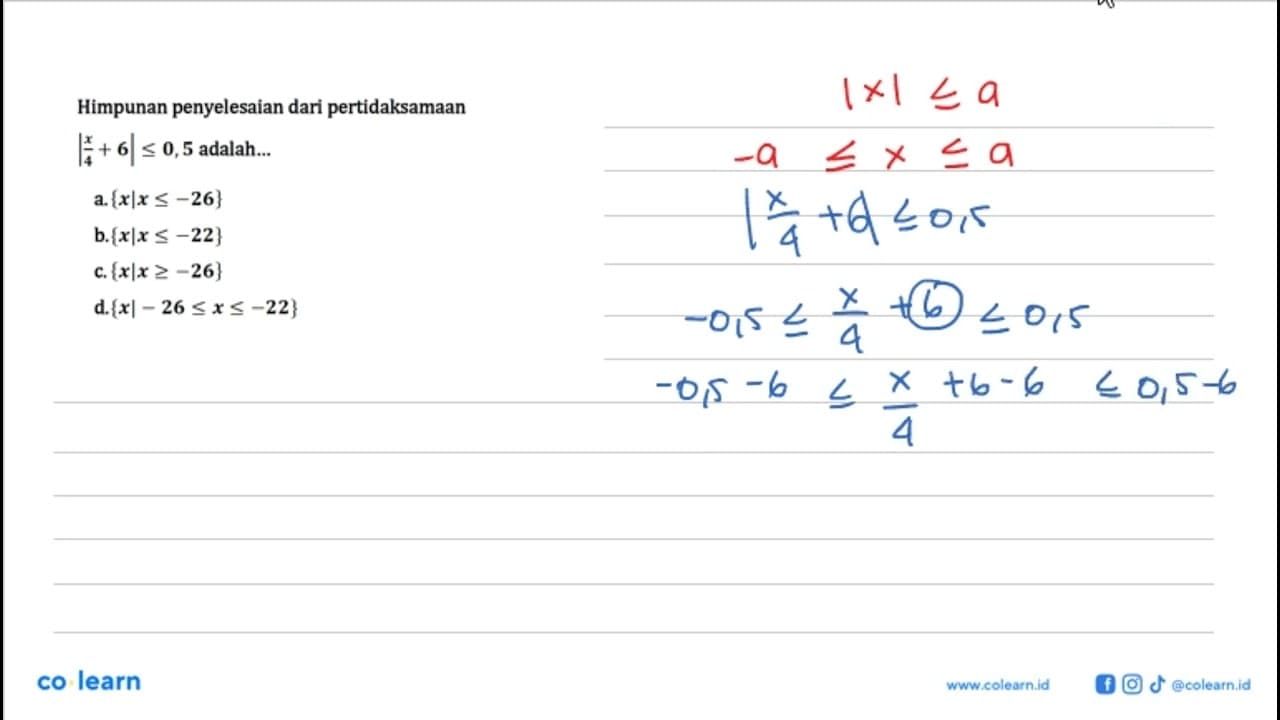 Himpunan penyelesaian dari pertidaksamaan
|x/4 + 6| ≤ 0,5 adalah...
a.{x|x ≤ −26}
b.{x|x ≤ −22}
c.{x|x ≥ −26}
d.{x| − 26 ≤ x ≤ −22}
|x| ≤ a
-a ≤ x ≤ a
|x/4 +6| ≤ 0,5
-0,5 ≤ x/4 +6 ≤ 0,5
-0,5 -6 ≤ x/4 +6-6 ≤ 0,5-6
co learn
www.colearn.id @colearn.id